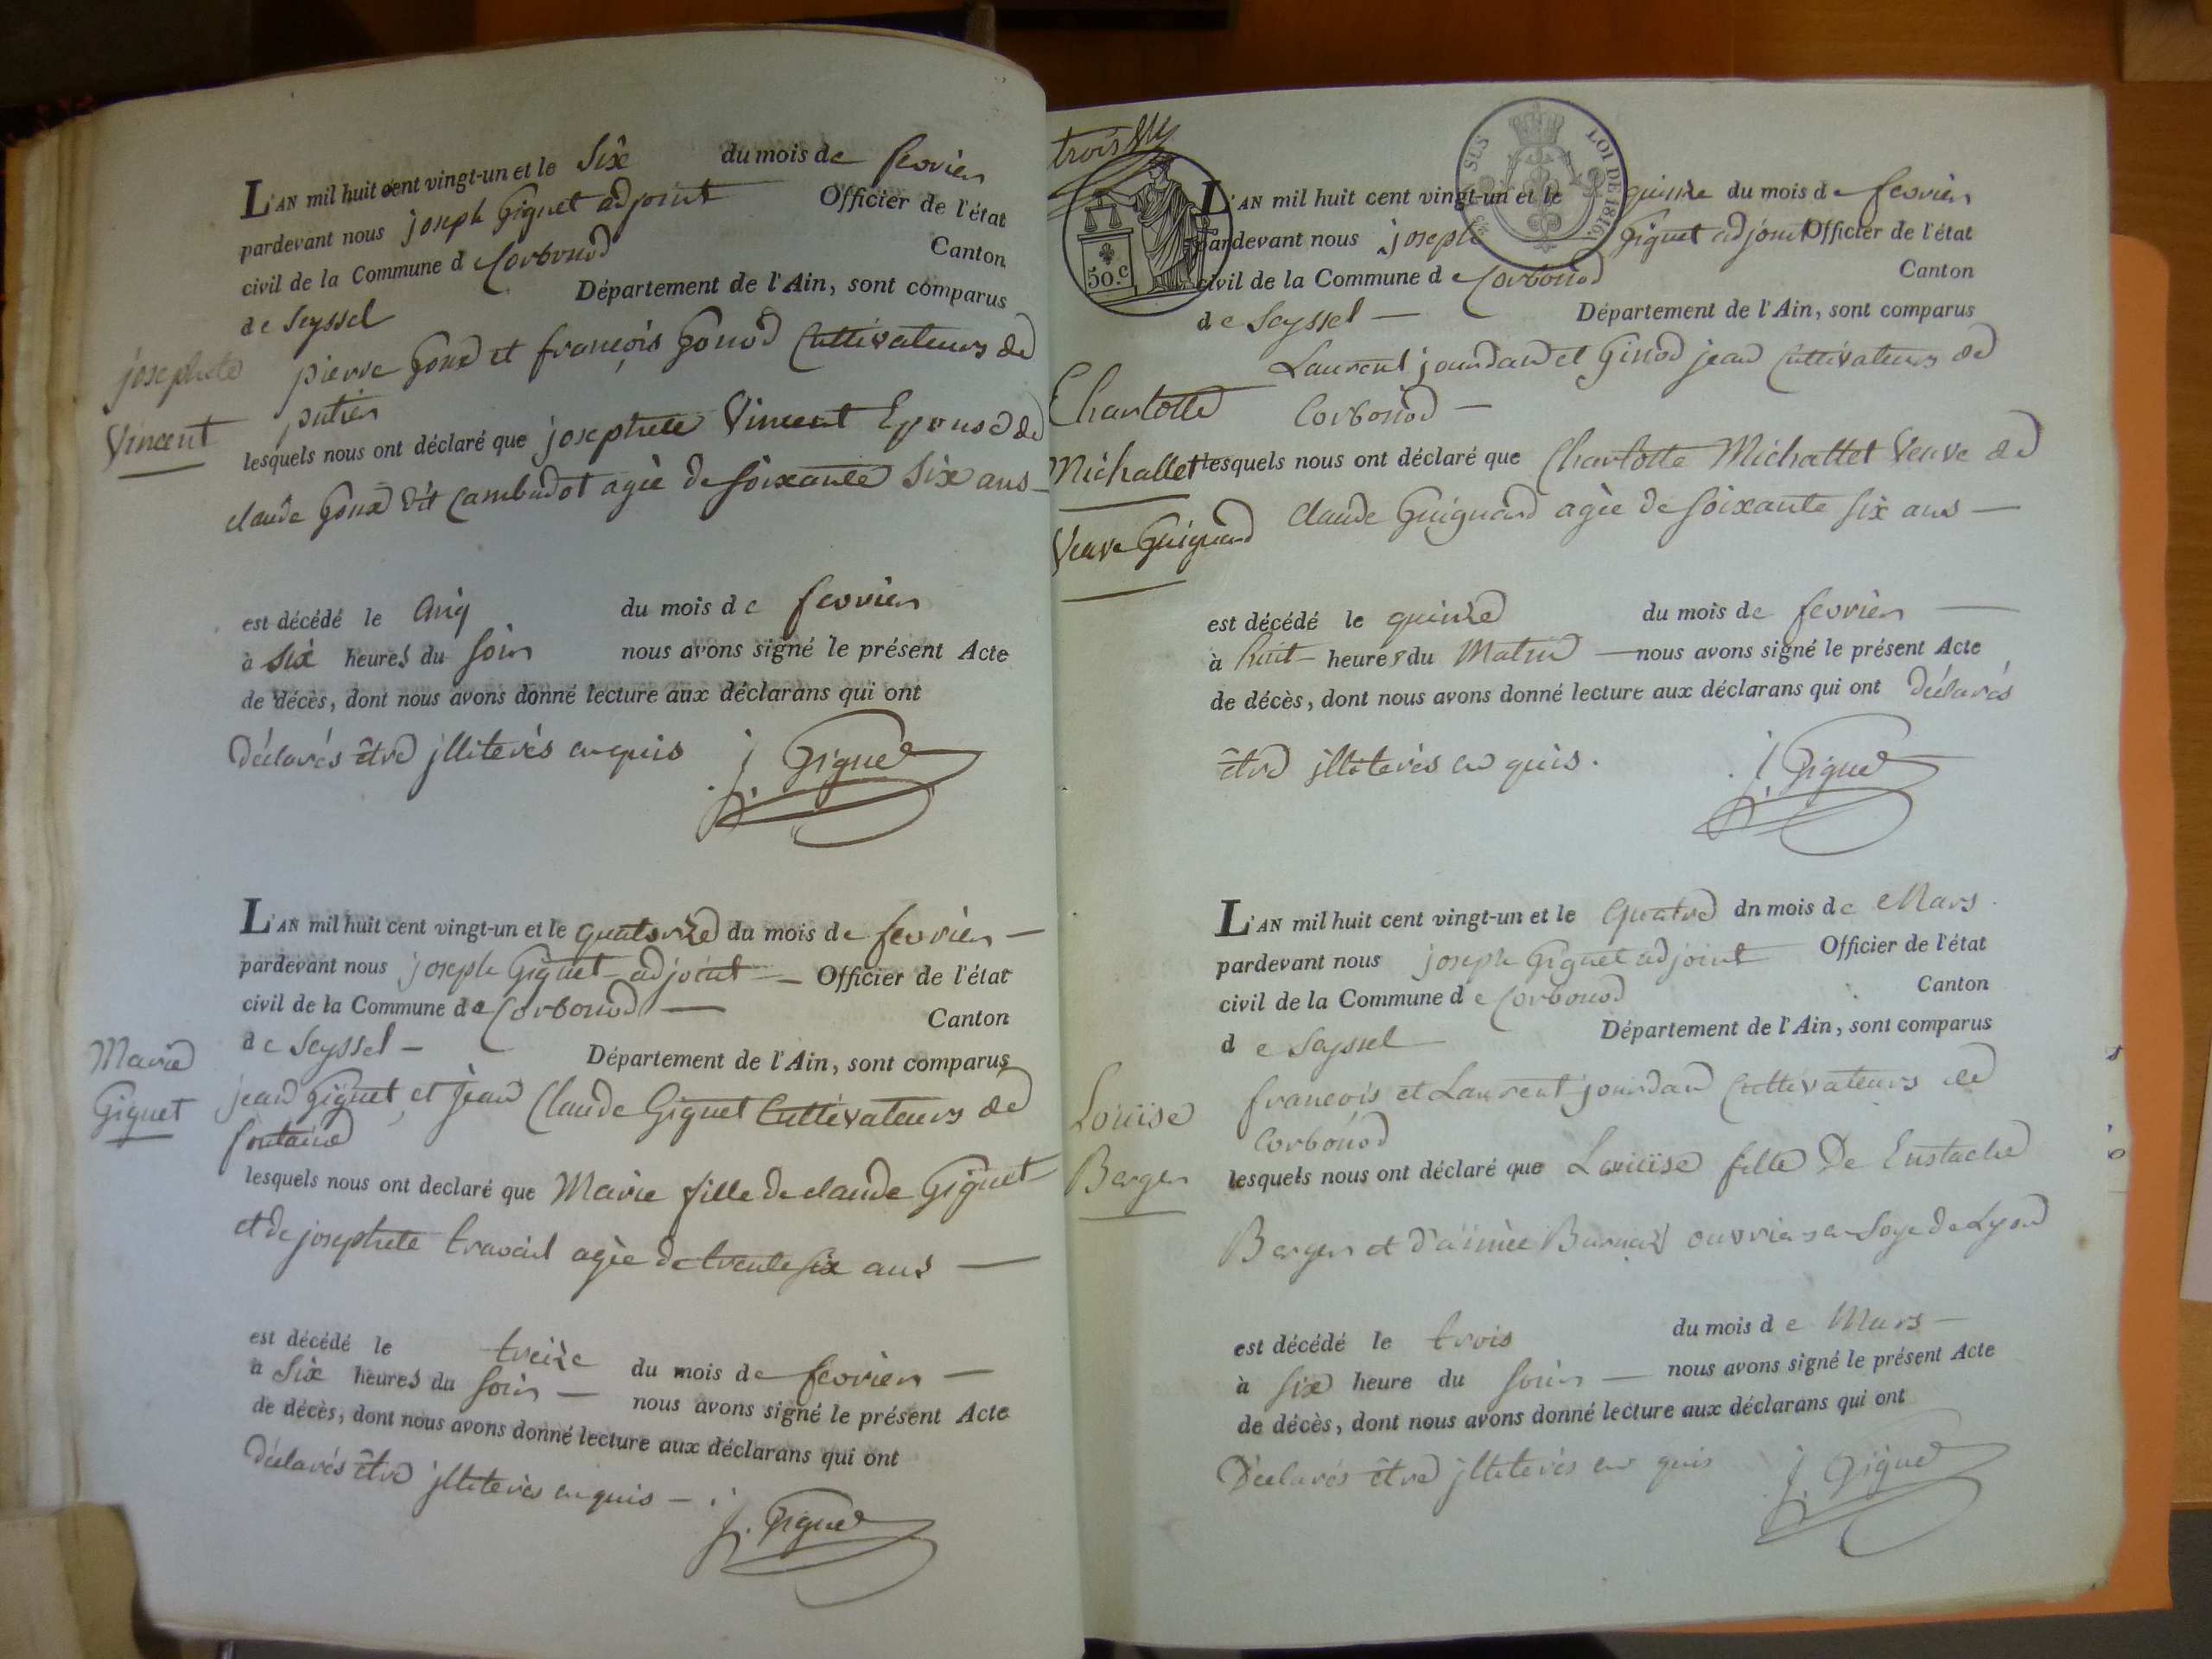 L'AN mil huit cent vingt-un et le Six du mois de fevrier
pardevant nous joseph Giguet adjoint Officier de l'état
civil de la Commune de Corbonod Canton
de Seyssel Département de l'Ain, sont comparus
josephete
Vincent
pierre Goux et françois Gonod Cultivateurs de
putier
lesquels nous ont déclaré que josephete Vincent Epouse de
claude Goux dit Cambudot agèe de soixante Six ans
est décédé le Cinq du mois de fevrier
à Six heures du Soir nous avons signé le présent Acte
de décès, dont nous avons donné lecture aux déclarans qui ont
déclarés être jlliterés enquis j Giguet
L'AN mil huit cent vingt-un et le quatorze du mois de fevrier —
pardevant nous joseph Giguet adjoint — Officier de l'état
civil de la Commune de Corbonod — Canton
de Seyssel — Département de l'Ain, sont comparus
Marie
Giguet
jean Giguet et jean Claude Giguet Cultivateurs de
fontaine
lesquels nous ont declaré que Marie fille de claude Giguet
et de josephete travail agèe de trente six ans —
est décédé le treize du mois de fevrier —
à Six heures du Soir — nous avons signé le présent Acte
de décès, dont nous avons donné lecture aux déclarans qui ont
déclarés être jlliterés enquis — j. Giguet
trois
SLS LOI DE 1816.
50.c
L'AN mil huit cent vingt-un et le quinze du mois de fevrier
pardevant nous joseph Giguet adjoint Officier de l'état
civil de la Commune de Corbonod Canton
de Seyssel — Département de l'Ain, sont comparus
Laurent jourdan et Ginod jean Cultivateurs de
Corbonod —
Charlotte
Michallet
Veuve Guignard
lesquels nous ont déclaré que Charlotte Michallet Veuve de
claude Guignard agèe de soixante six ans —
est décédé le quinze du mois de fevrier —
à huit heures du Matin — nous avons signé le présent Acte
de décès, dont nous avons donné lecture aux déclarans qui ont déclarés
être jlliterés en quis. j. Giguet
L'AN mil huit cent vingt-un et le Quatre dn mois de Mars
pardevant nous joseph Giguet adjoint Officier de l'état
civil de la Commune de Corbonod Canton
de Seyssel Département de l'Ain, sont comparus
françois et Laurent jourdan Cultivateurs de
Corbonod
Louise
Berger
lesquels nous ont déclaré que Louise fille De Eustache
Berger et d'aimèe ouvrier en Soye de Lyon
est décédé le trois du mois de Mars —
à six heure du soir — nous avons signé le présent Acte
de décès, dont nous avons donné lecture aux déclarans qui ont
Déclarés être jlliterés en quis j. Giguet